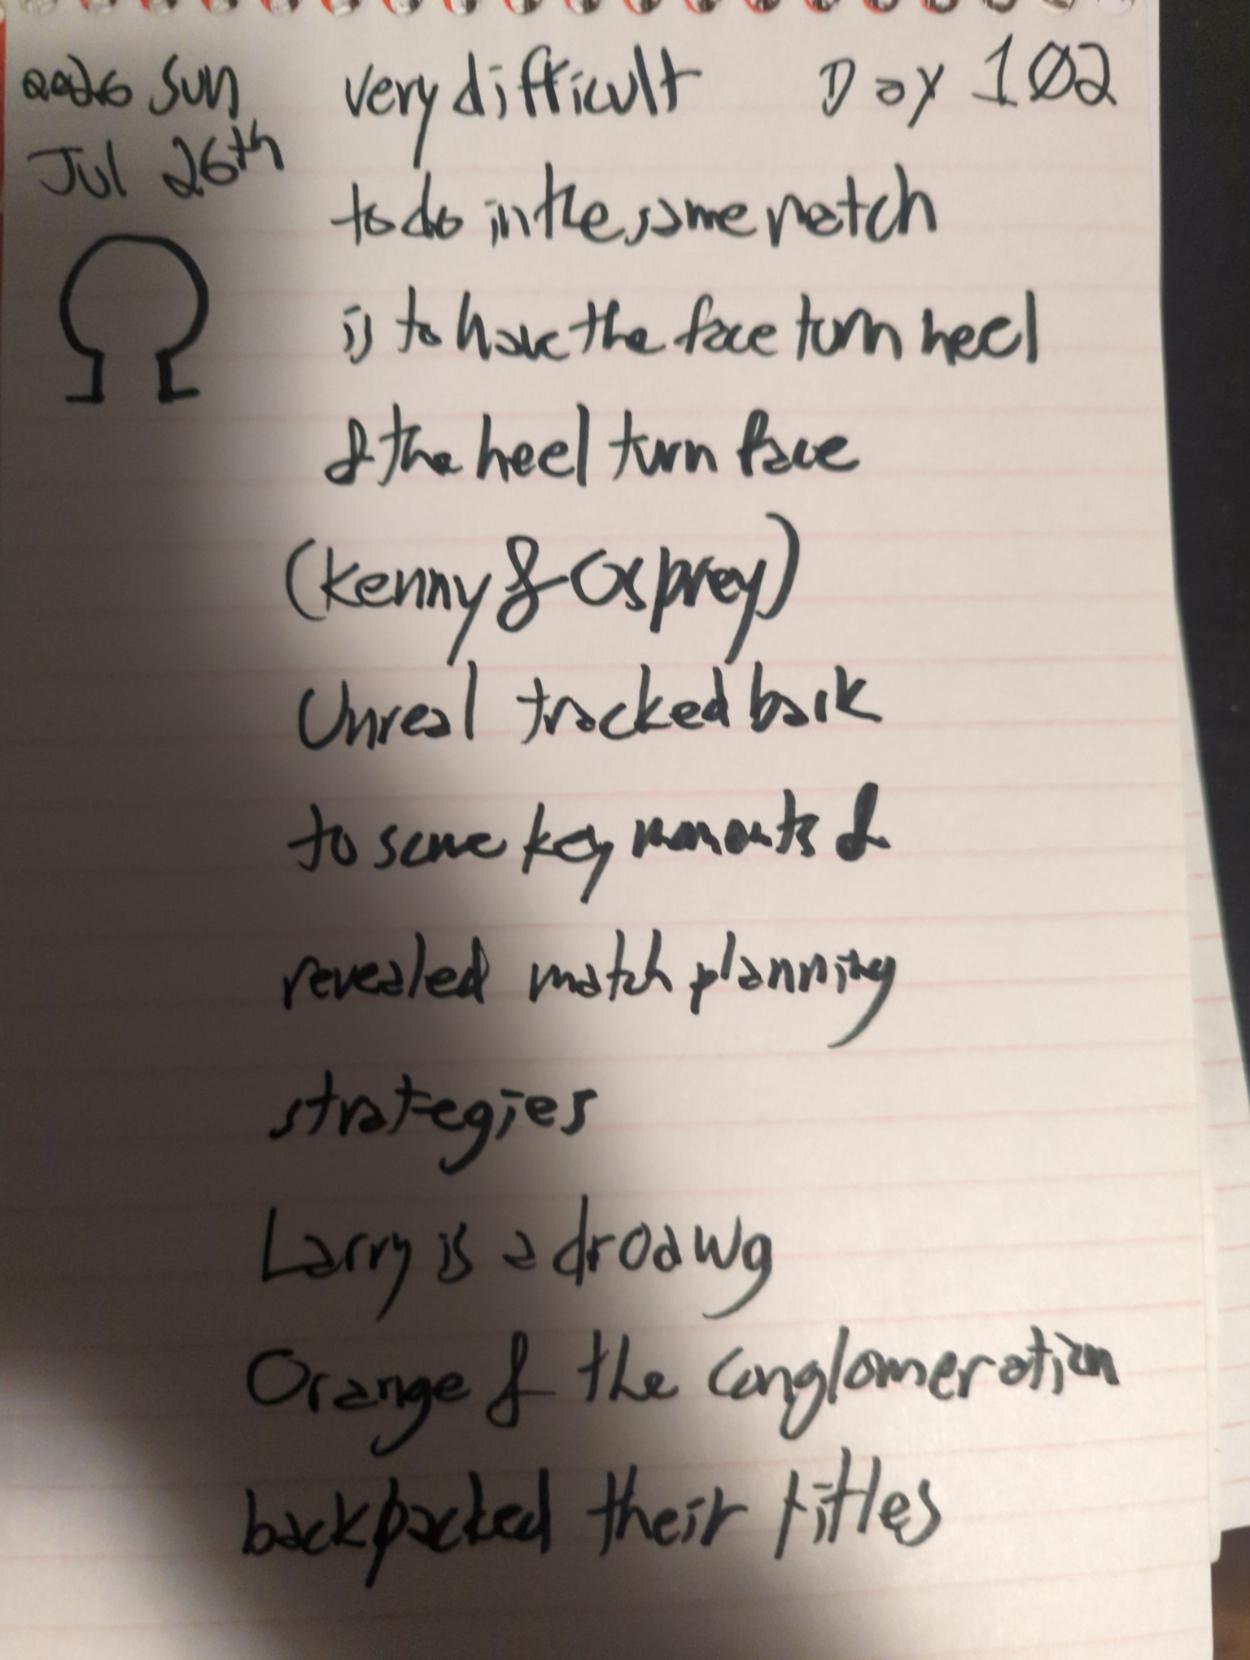 2026 Sun very difficult Day 102
Jul 26th
to do in the same match
is to have the face turn heel
& the heel turn face
(Kenny & Osprey)
Unreal tracked back
to some key moments &
revealed match planning
strategies
Larry is a droawg
Orange & the Conglomeration
backpacked their titles